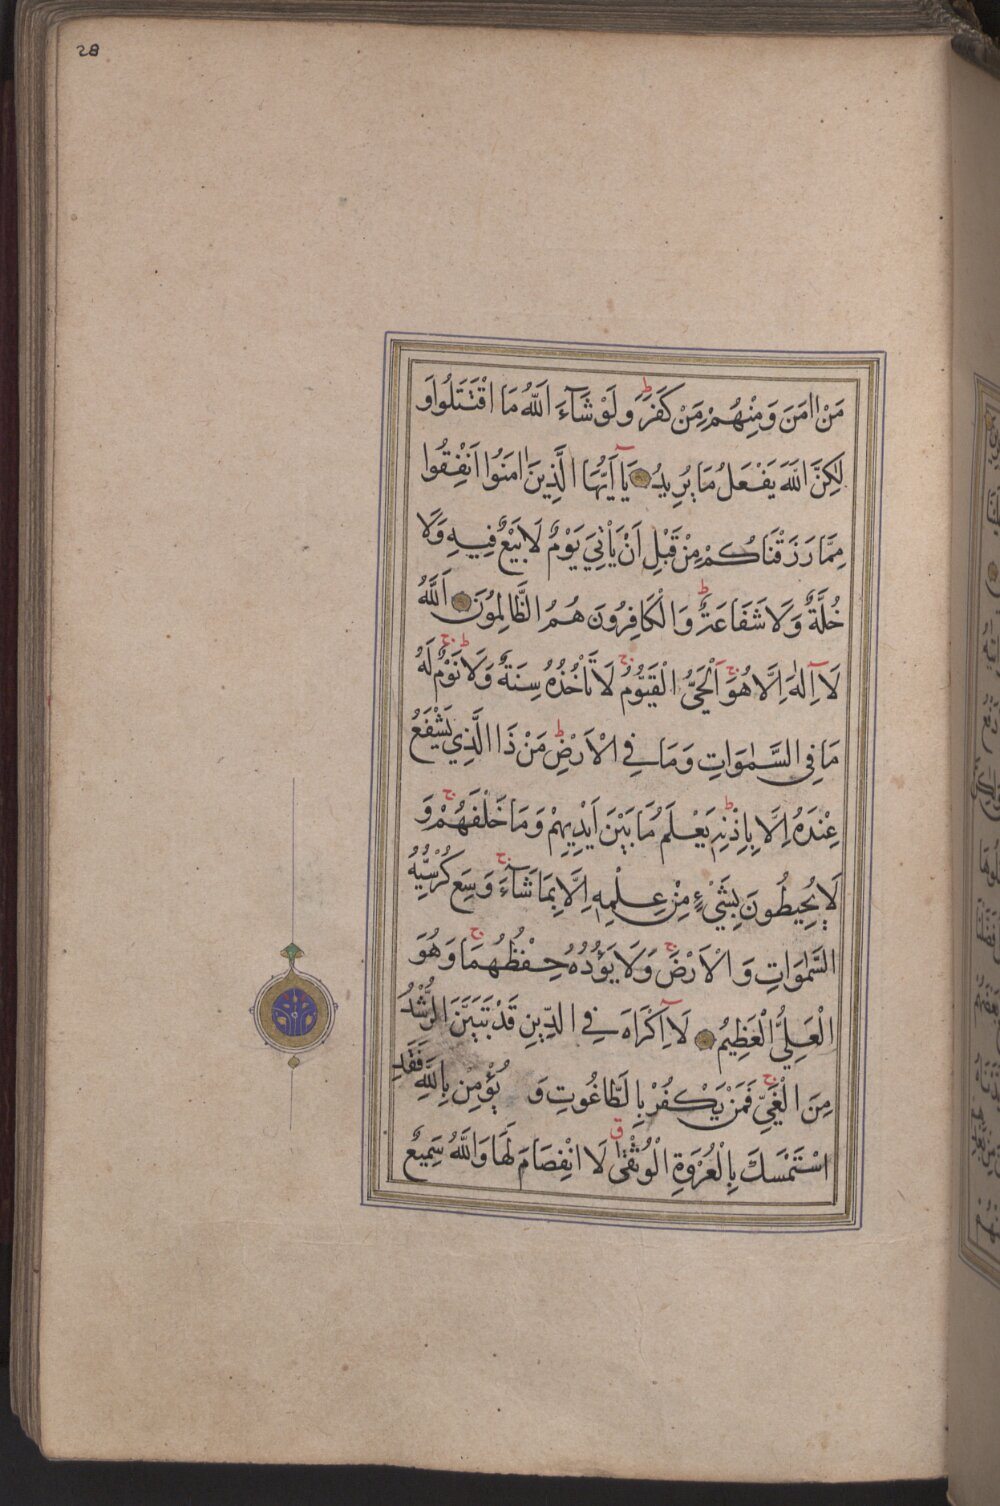 28
مَنْ اٰمَنَ وَمِنْهُمْ مَنْ كَفَرَ ط وَلَوْ شَآءَ اللّٰهُ مَا اقْتَتَلُوا وَ
لٰكِنَّ اللّٰهَ يَفْعَلُ مَا يُرِيدُ يَآ اَيُّهَا الَّذِينَ اٰمَنُوا اَنْفِقُوا
مِمَّا رَزَقْنَاكُمْ مِنْ قَبْلِ اَنْ يَاْتِيَ يَوْمٌ لَا بَيْعٌ فِيهِ وَلَا
خُلَّةٌ وَلَا شَفَاعَةٌ ط وَالْكَافِرُونَ هُمُ الظَّالِمُونَ اَللّٰهُ
لَآ اِلٰهَ اِلَّا هُوَ ج اَلْحَيُّ الْقَيُّومُ ج لَا تَاْخُذُهُ سِنَةٌ وَلَا نَوْمٌ ط لَهُ
مَا فِي السَّمٰوَاتِ وَمَا فِي الْاَرْضِ ط مَنْ ذَا الَّذِي يَشْفَعُ
عِنْدَهُ اِلَّا بِاِذْنِهِ ط يَعْلَمُ مَا بَيْنَ اَيْدِيهِمْ وَمَا خَلْفَهُمْ ج وَ
لَا يُحِيطُونَ بِشَيْءٍ مِنْ عِلْمِهِ اِلَّا بِمَا شَآءَ ج وَسِعَ كُرْسِيُّهُ
السَّمٰوَاتِ وَالْاَرْضَ ج وَلَا يَؤُدُهُ حِفْظُهُمَا ج وَهُوَ
الْعَلِيُّ الْعَظِيمُ لَآ اِكْرَاهَ فِي الدِّينِ قَدْ تَبَيَّنَ الرُّشْدُ
مِنَ الْغَيِّ ج فَمَنْ يَكْفُرْ بِالطَّاغُوتِ وَ يُؤْمِنْ بِاللّٰهِ فَقَدِ
اسْتَمْسَكَ بِالْعُرْوَةِ الْوُثْقٰى ق لَا انْفِصَامَ لَهَا وَاللّٰهُ سَمِيعٌ